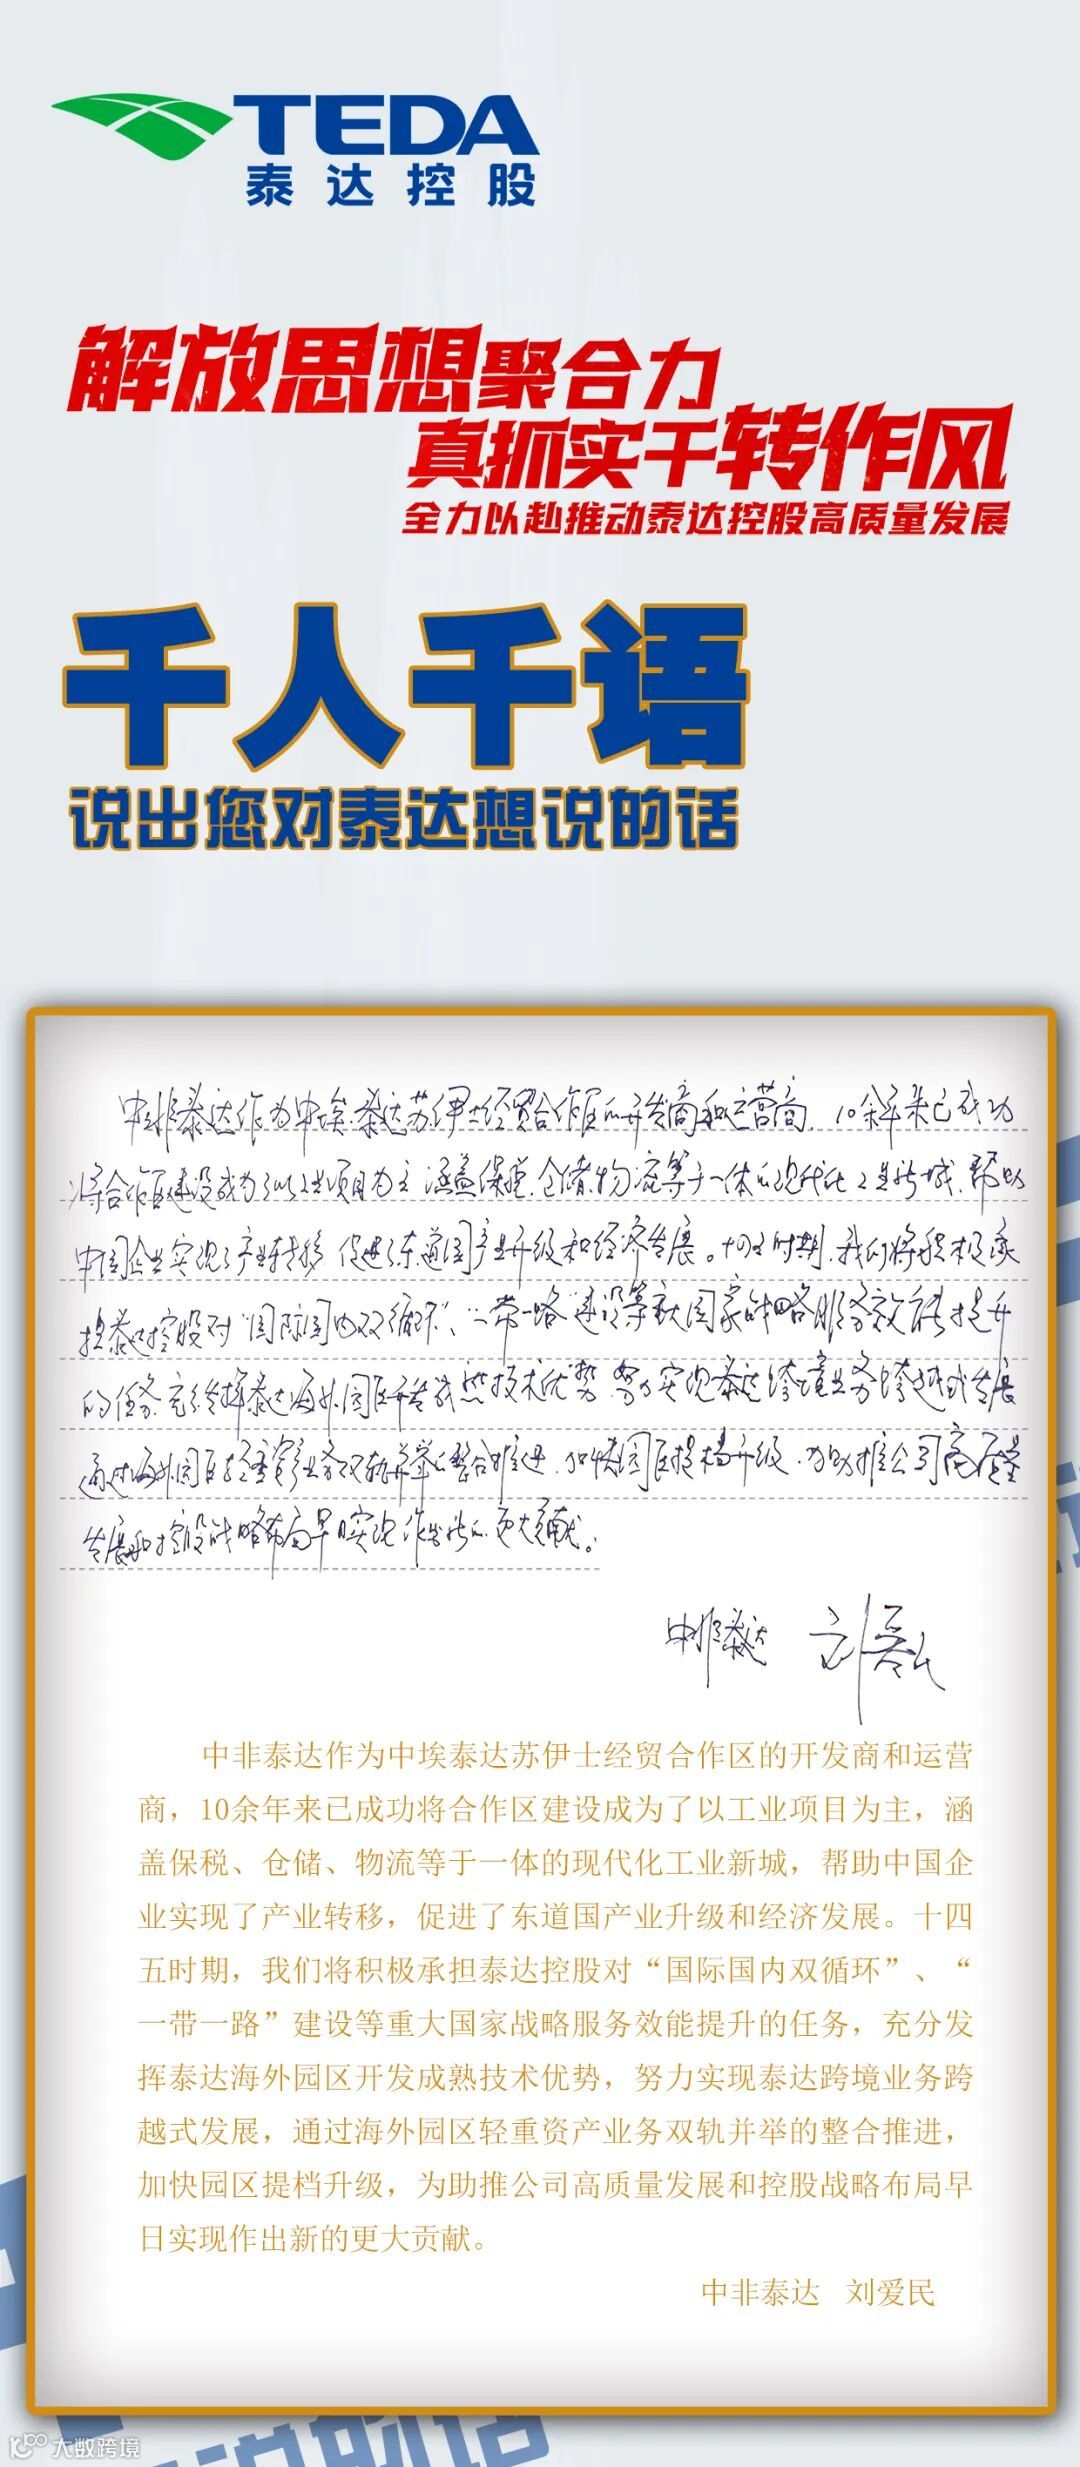 TEDA
泰达控股
解放思想聚合力
真抓实干转作风
全力以赴推动泰达控股高质量发展
千人千语
说出您对泰达想说的话
中非泰达作为中埃·泰达苏伊士经贸合作区的开发商和运营商，10余年来已成功
将合作区建设成为了以工业项目为主，涵盖保税、仓储、物流等于一体的现代化工业新城，帮助
中国企业实现了产业转移，促进了东道国产业升级和经济发展。十四五时期，我们将积极承
担泰达控股对“国际国内双循环”、“一带一路”建设等重大国家战略服务效能提升
的任务，充分发挥泰达海外园区开发成熟技术优势，努力实现泰达跨境业务跨越式发展
通过海外园区轻重资产业务双轨并举的整合推进，加快园区提档升级，为助推公司高质量
发展和控股战略布局早日实现作出新的更大贡献。
中非泰达 刘爱民
中非泰达作为中埃泰达苏伊士经贸合作区的开发商和运营
商，10余年来已成功将合作区建设成为了以工业项目为主，涵
盖保税、仓储、物流等于一体的现代化工业新城，帮助中国企
业实现了产业转移，促进了东道国产业升级和经济发展。十四
五时期，我们将积极承担泰达控股对“国际国内双循环”、“
一带一路”建设等重大国家战略服务效能提升的任务，充分发
挥泰达海外园区开发成熟技术优势，努力实现泰达跨境业务跨
越式发展，通过海外园区轻重资产业务双轨并举的整合推进，
加快园区提档升级，为助推公司高质量发展和控股战略布局早
日实现作出新的更大贡献。
中非泰达 刘爱民
大数跨境